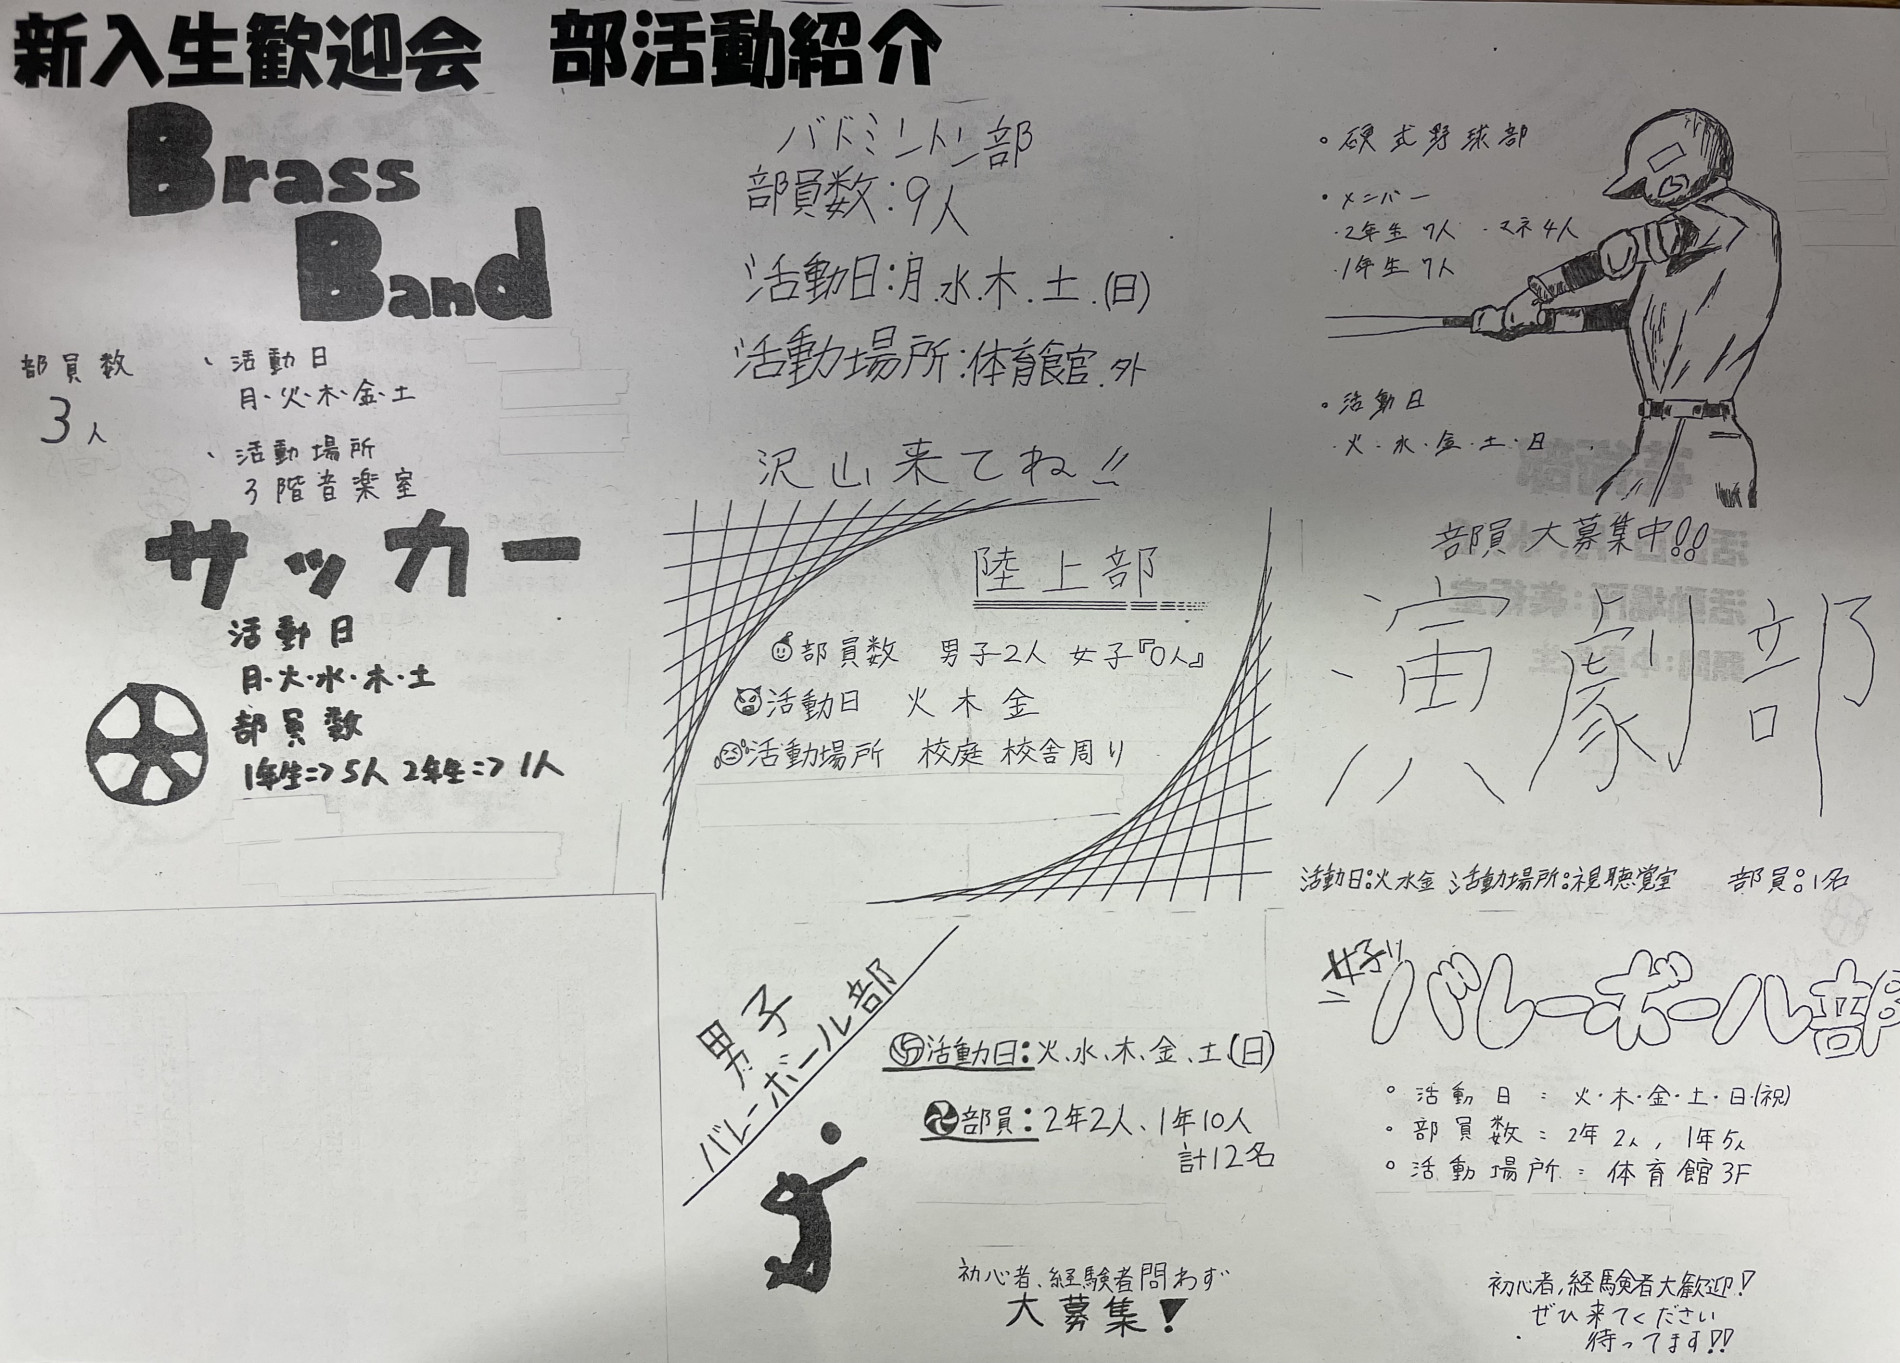 新入生歓迎会　部活動紹介
Brass
Band
部員数
3人
、活動日
月・火・木・金・土
、活動場所
3階音楽室
サッカー
活動日
月・火・水・木・土
部員数
1年生=>5人 2年生=>1人
バドミントン部
部員数:9人
活動日:月.水.木.土.(日)
活動場所:体育館.外
沢山来てね!!
陸上部
部員数　男子2人　女子『0人』
活動日　火 木 金
活動場所　校庭 校舎周り
男子
バレーボール部
活動日:火、水、木、金、土、(日)
部員:2年2人、1年10人
計12名
初心者、経験者問わず
大募集!
。硬式野球部
・メンバー
・2年生 7人　・マネ4人
・1年生 7人
。活動日
・火・水・金・土・日
部員大募集中!!
演劇部
活動日:火水金 活動場所:視聴覚室　部員:1名
女子
バレーボール部
。活動日:火・木・金・土・日・(祝)
・部員数:2年2人, 1年5人
。活動場所:体育館3F
初心者,経験者大歓迎!
ぜひ来てください
待ってます!!